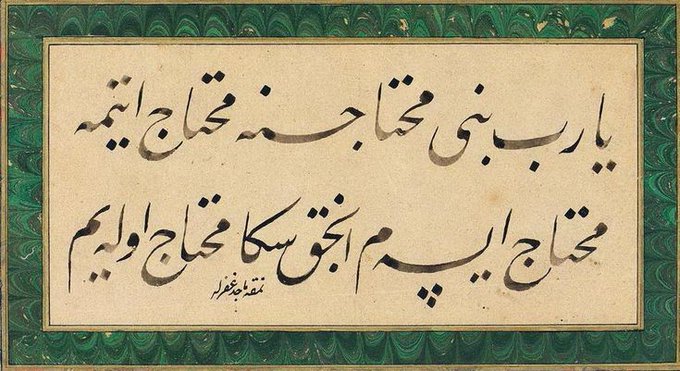 يا رب بنى محتاجسنه محتاج ايتمه
محتاج ايسه م انجق سكا محتاج اوله يم
نمقه ماجد غفرله